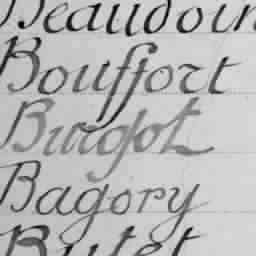 Beaudoin
Bouffort
Burgot
Bagory
Butet